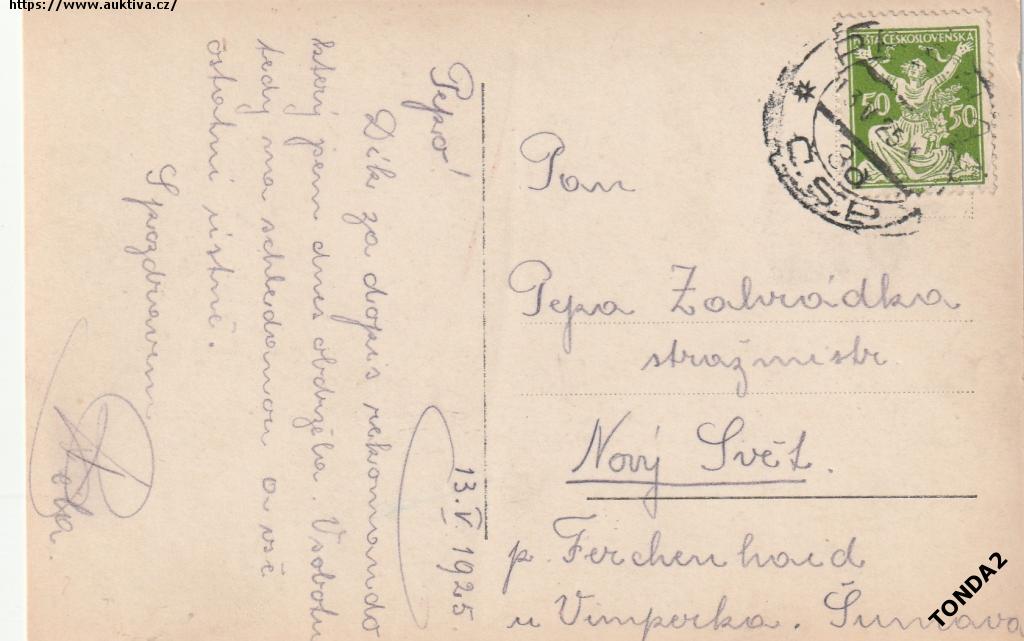 https://www.auktiva.cz/
Pepo!
Dík za dopis rekomando
který jsem dnes obdržela. V sobotu
tedy na schledanou a vše
ostatní ústně.
S pozdravem
13.V.1925.
POŠTA ČESKOSLOVENSKA
50 50
Č.S.P.
Pan
Pepa Zahrádka
stražmistr
Nový Svět.
p. Ferchenhaid
u Vimperka. Šumava
TONDA2